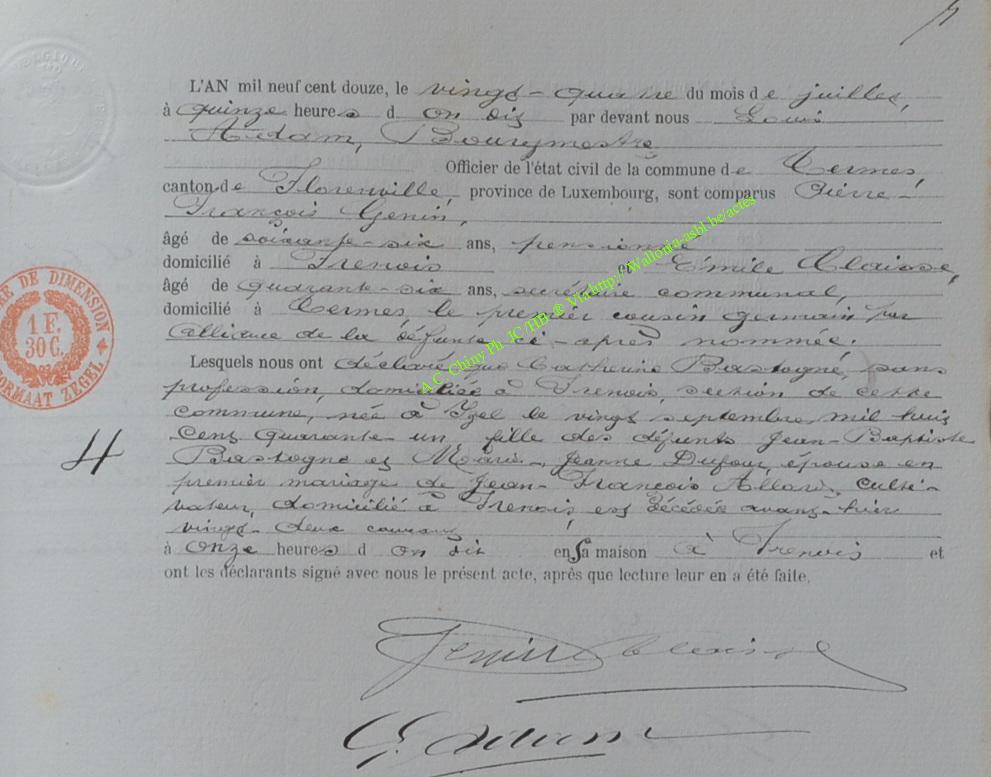 L'AN mil neuf cent douze, le vingt-quatre du mois de juillet,
à quinze heures d on dit par devant nous Louis
Adam, Bourgmestre
Officier de l'état civil de la commune de Termes,
canton de Florenville, province de Luxembourg, sont comparus Pierre-
François Genin,
âgé de soixante-six ans, pensionné
domicilié à Frenois et Emile Claisse,
âgé de quarante-six ans, secrétaire communal,
domicilié à Termes, le premier cousin germain par
alliance de la défunte ci-après nommée.
Lesquels nous ont déclaré que Catherine Bastogne, sans
profession, domiciliée à Frenois, section de cette
commune, née à Izel le vingt septembre mil huit
cent quarante un, fille des défunts Jean-Baptiste
Bastogne et Marie-Jeanne Dufour, épouse en
premier mariage de Jean-François Allard, culti-
vateur, domicilié à Frenois, est décédée avant-hier
vingt-deux courant
à onze heures d on dit en sa maison à Frenois et
ont les déclarants signé avec nous le présent acte, après que lecture leur en a été faite.
4
1 F.
30 C.
DE DIMENSION
FORMAAT ZEGEL
A.C. Chiny Ph JC/HB @ Via http://Wallonia-asbl.be/actes
Genin Claisse
Adam